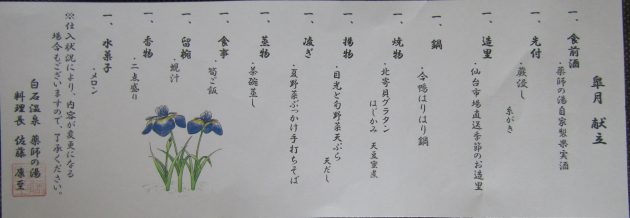 皐月 献立
一、食前酒
・薬師の湯自家製果実酒
一、先付
・蕨浸し 糸がき
一、造里
・仙台市場直送季節のお造里
一、鍋
・合鴨はりはり鍋
一、焼物
・北寄貝グラタン
はじかみ 天豆蜜煮
一、揚物
・目光と旬野菜天ぷら
天だし
一、凌ぎ
・夏野菜ぶっかけ手打ちそば
一、蒸物
・茶碗蒸し
一、食事
・筍ご飯
一、留椀
・蜆汁
一、香物
・二点盛り
一、水菓子
・メロン
※仕入状況により、内容が変更になる
場合もございますので、ご了承ください。
白石温泉 薬師の湯
料理長 佐藤 康